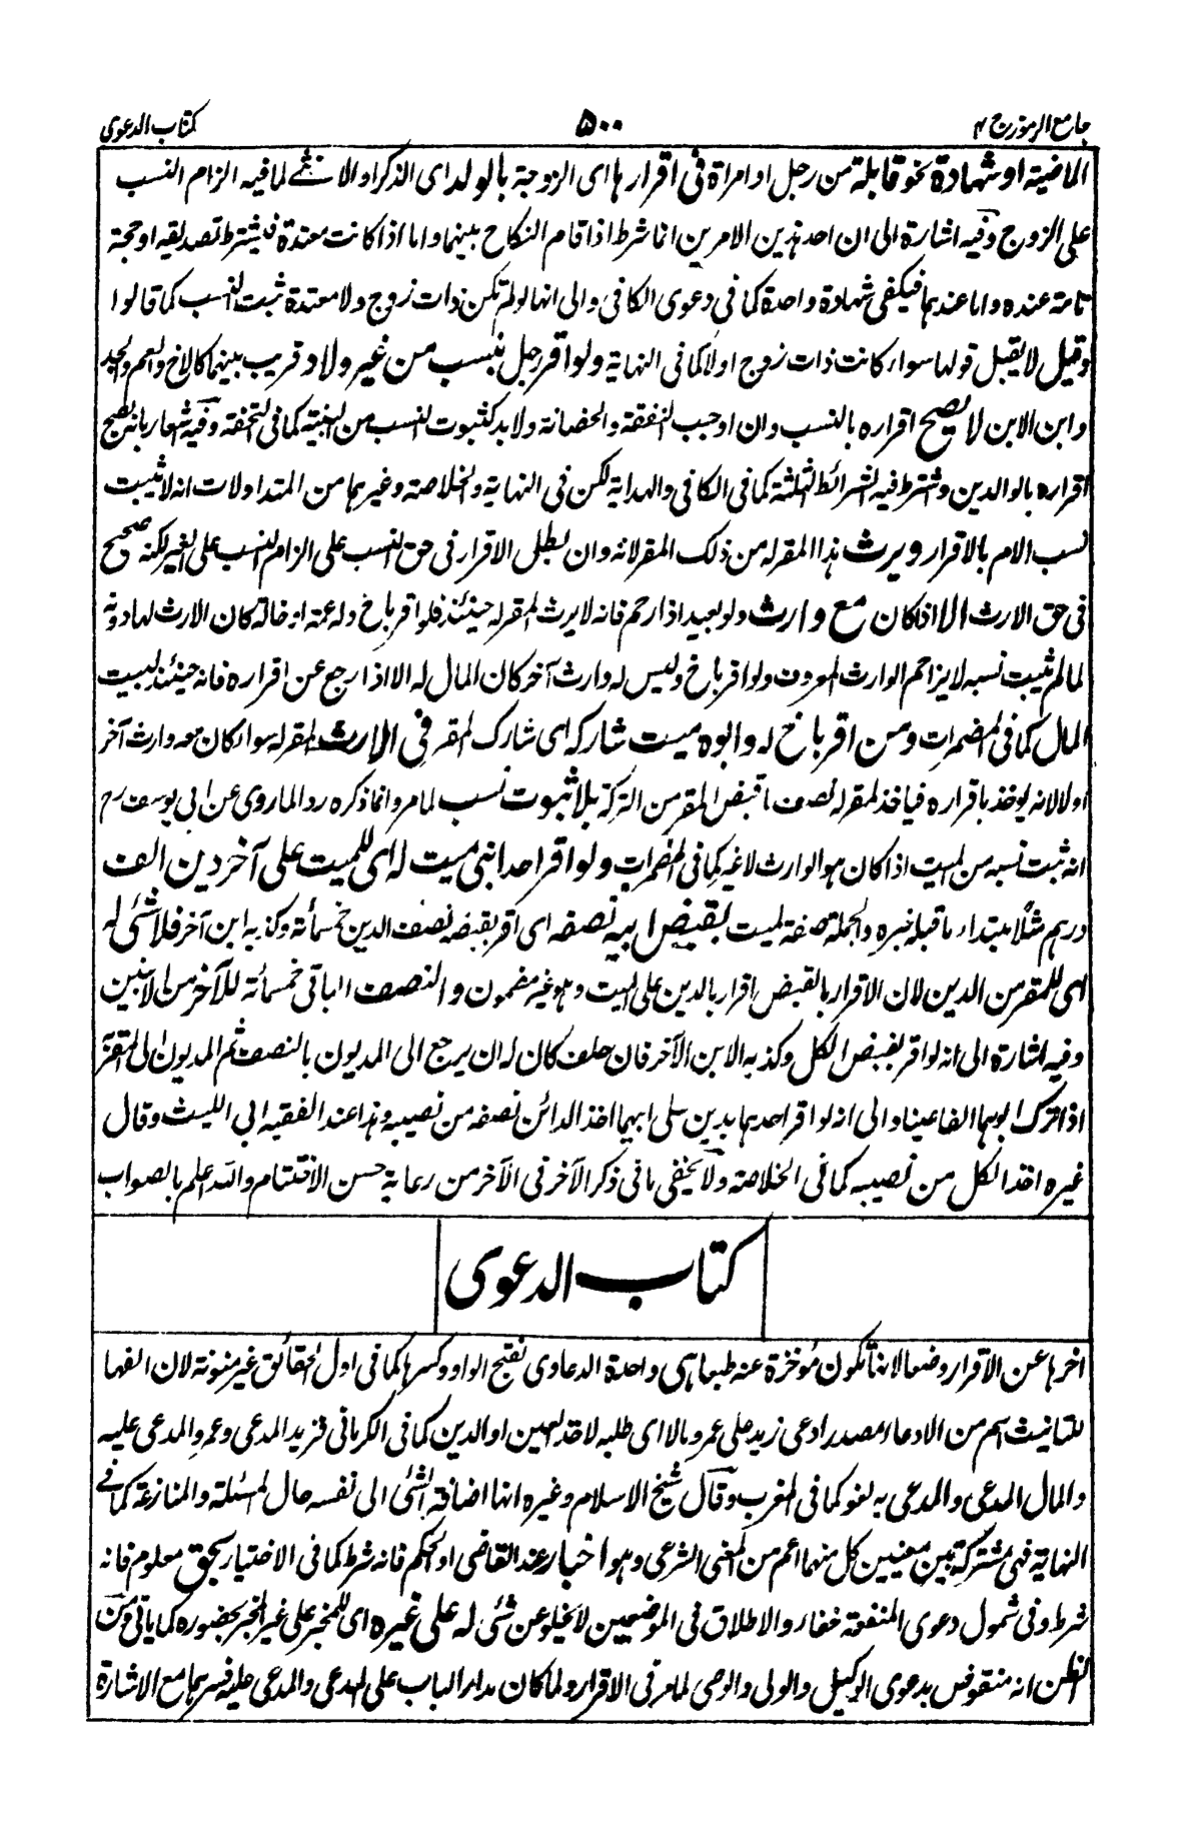 جامع الرموز ج ۲
۵۰۰
كتاب الدعوى
الماضية او شهادة نحو قابلة من رجل او امراة فى اقرارها اى الزوجة بالولد اى الذكر او الانثى لما فيه الزام النسب
على الزوج وفيه اشارة الى ان احد هذين الامرين انما شرط اذا قام النكاح بينهما واما اذا كانت معتدة فيشترط تصديقه او حجة
تامة عنده واما عندهما فيكفى شهادة واحدة كما فى دعوى الكافى والى انها لو لم تكن ذات زوج ولا معتدة ثبت النسب كما قالوا
وقيل لا يقبل قولها سواء كانت ذات زوج اولا كما فى النهاية ولو اقر رجل بنسب من غير ولاد قريب بينهما كالاخ والعم والجد
وابن الابن لا يصح اقراره بالنسب وان اوجب النفقة والحضانة ولا بد كثبوت النسب من البينة كما فى التحفة وفيه اشعار بانه يصح
اقراره بالوالدين وشترط فيه الشرائط الثلثة كما فى الكافى والهداية لكن فى النهاية والخلاصة وغيرهما من المتداولات انه لا يثبت
نسب الام بالاقرار ويرث هذا المقر له من ذلك المقر لانه وان بطل الاقرار فى حق النسب على الزام النسب على الغير لكنه صحيح
فى حق الارث الا اذا كان مع وارث ولو بعيدا ذا رحم فانه لا يرث المقر له حينئذ فلو اقر باخ وله عمة او خالة كان الارث لها دونه
لما لم يثبت نسبه لا يزاحم الوارث المعروف ولو اقر باخ وليس له وارث آخر كان المال له الا اذا رجع عن اقراره فانه حينئذ لبيت
المال كما فى المضمرات ومن اقر باخ له وابوه ميت شاركه اى شارك المقر فى الارث المقر له سواء كان معه وارث آخر
اولا لانه يوخذ باقراره فياخذ المقر له نصف ما قبض المقر من التركة بلا ثبوت نسب لما مر وانما ذكره رد الما روى عن ابى يوسف رح
انه ثبت نسبه من الميت اذا كان هو الوارث لا غيره كما فى المضمرات ولو اقر احد ابنى ميت له اى للميت على آخر دين الف
درهم مثلا مبتداء ما قبله خبره والجملة صفة لميت بقبض ابيه نصفه اى اقر بقبضه نصف الدين خمسمأئة وكذبه ابن آخر فلا شئ له
اى للمقر من الدين لان الاقرار بالقبض اقرار بالدين على الميت وهو غير مضمون والنصف الباقى خمسمأئة للآخر من الابنين
وفيه اشارة الى انه لو اقر بقبض الكل وكذبه الابن الآخر فان حلف كان له ان يرجع الى المديون بالنصف ثم المديون الى المقر
اذا ترك ابوهما الفا عينا والى انه لو اقر احدهما بدين على ابيهما اخذ الدائن نصفه من نصيبه وهذا عند الفقيه ابى الليث وقال
غيره اخذ الكل من نصيبه كما فى الخلاصة ولا يخفى ما فى ذكر الآخر فى الآخر من رعاية حسن الاختتام والله اعلم بالصواب
كتاب الدعوى
اخرها عن الاقرار وضعا لانها تكون مؤخرة عنه طبعا هى واحدة الدعاوى بفتح الواو وكسرها كما فى اول الحقائق غير منونة لان الفها
للتانيث اسم من الادعاء مصدر ادعى زيد على عمرو مالا اى طلبه لاخذ العين او الدين كما فى الكرمانى فزيد المدعى وعمرو المدعى عليه
والمال المدعى والمدعى به لغو كما فى المغرب وقال شيخ الاسلام وغيره انها اضافة الشئ الى نفسه حال المسئلة والمنازعة كما فى
النهاية فهى مشتركة بين معنيين كل منهما اعم من المعنى الشرعى وهو اخبار عند القاضى او الحكم فانه شرط كما فى الاختيار بحق معلوم فانه
شرط وفى شمول دعوى المنفعة خفاء والاطلاق فى الموضعين لا يخلو عن شئ له على غيره اى للمخبر على غير المخبر بحضوره كما ياتى ومن
الظن انه منقوض بدعوى الوكيل والولى والوصى لما مر فى الاقرار ولما كان مدار الباب على المدعى والمدعى عليه فسرهما مع الاشارة